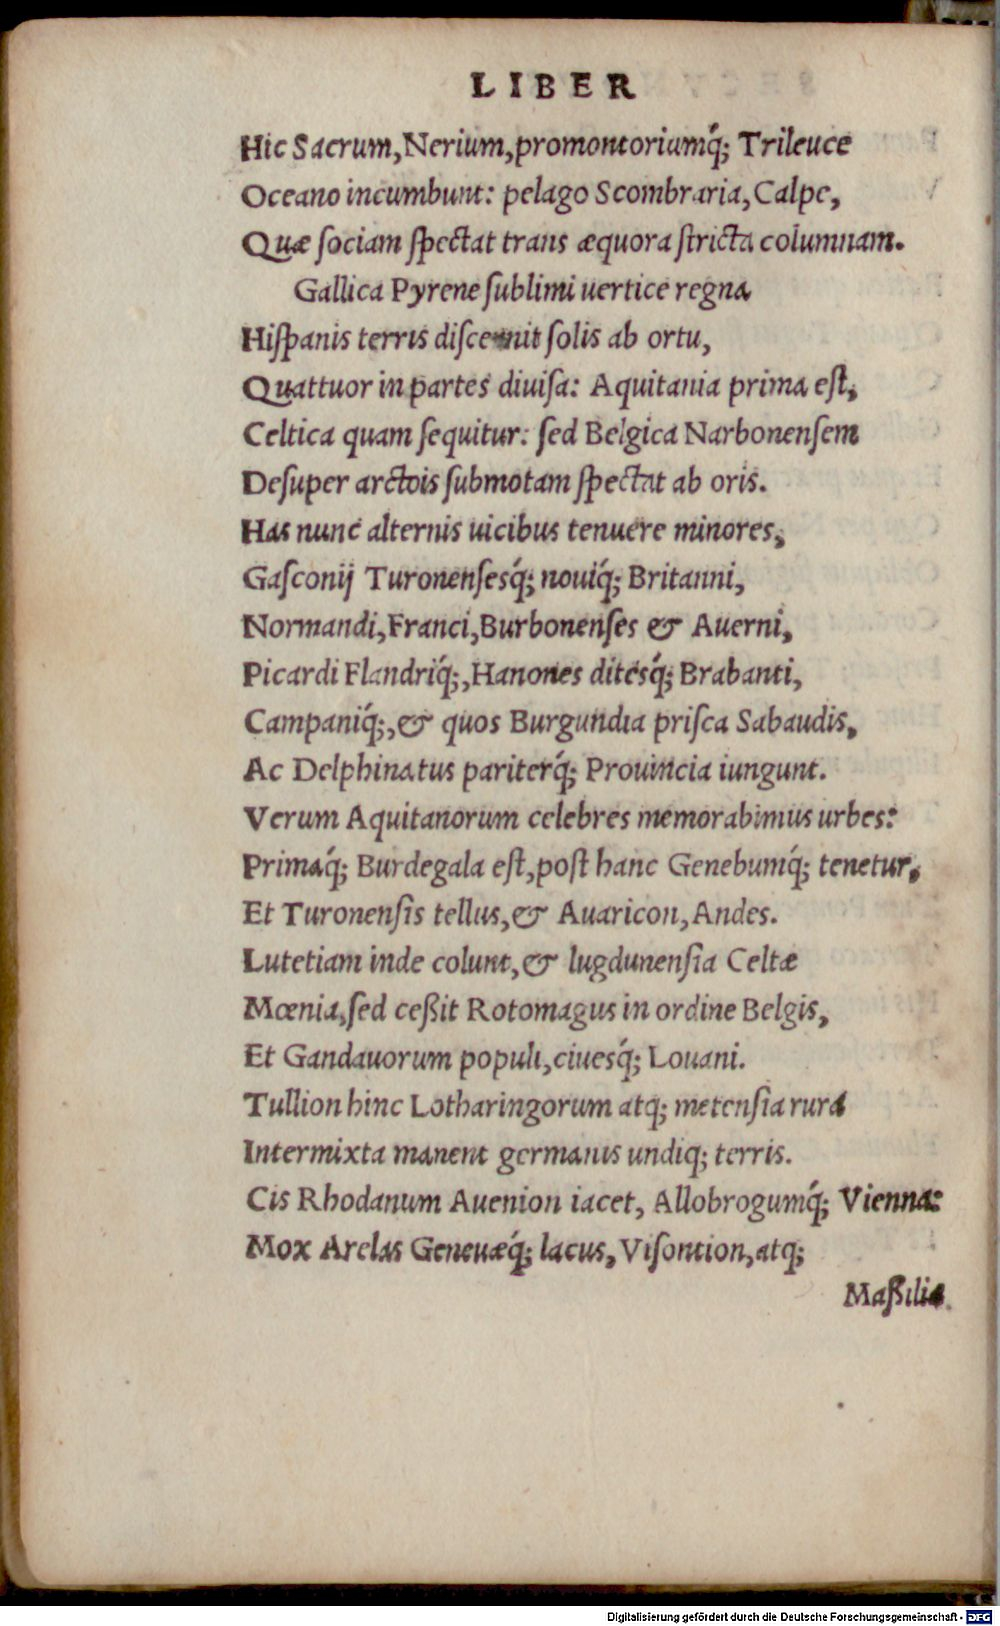 LIBER
Hic Sacrum, Nerium, promontoriumq́; Trileuce
Oceano incumbunt: pelago Scombraria, Calpe,
Quæ ſociam ſpectat trans æquora ſtricta columnam.
Gallica Pyrene ſublimi uertice regna
Hiſpanis terris diſcernit ſolis ab ortu,
Quattuor in partes diuiſa: Aquitania prima eſt,
Celtica quam ſequitur: ſed Belgica Narbonenſem
Deſuper arctois ſubmotam ſpectat ab oris.
Has nunc alternis uicibus tenuere minores,
Gaſconij Turonenſesq́; nouiq́; Britanni,
Normandi, Franci, Burbonenſes & Auerni,
Picardi Flandriq́;, Hanones ditesq́; Brabanti,
Campaniq́;, & quos Burgundia priſca Sabaudis,
Ac Delphinatus pariterq́; Prouincia iungunt.
Verum Aquitanorum celebres memorabimus urbes:
Primaq́; Burdegala eſt, poſt hanc Genebumq́; tenetur,
Et Turonenſis tellus, & Auaricon, Andes.
Lutetiam inde colunt, & lugdunenſia Celtæ
Mœnia, ſed ceßit Rotomagus in ordine Belgis,
Et Gandauorum populi, ciuesq́; Louani.
Tullion hinc Lotharingorum atq; metenſia rura
Intermixta manent germanis undiq; terris.
Cis Rhodanum Auenion iacet, Allobrogumq́; Vienna:
Mox Arelas Geneuæq́; lacus, Viſontion, atq;
Maßilia
Digitalisierung gefördert durch die Deutsche Forschungsgemeinschaft - DFG